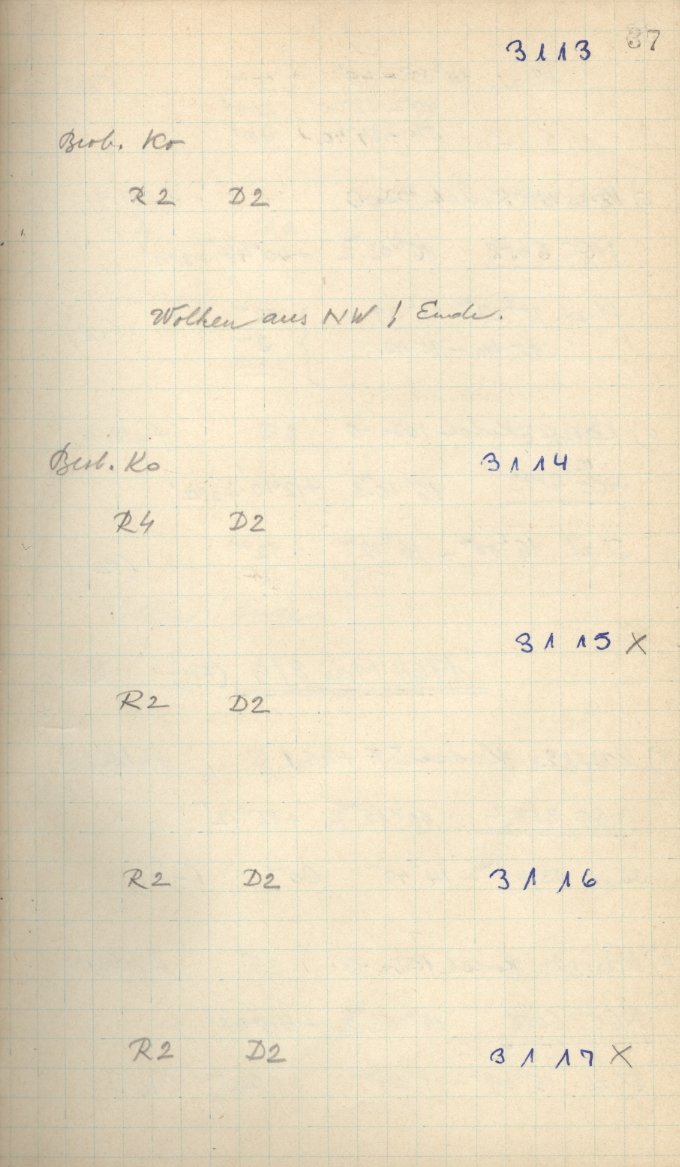 3113 37
Beob. Ko
R2 D2
Wolken aus NW ! Ende.
Beob. Ko 3114
R4 D2
3115 X
R2 D2
R2 D2 3116
R2 D2 3117 X